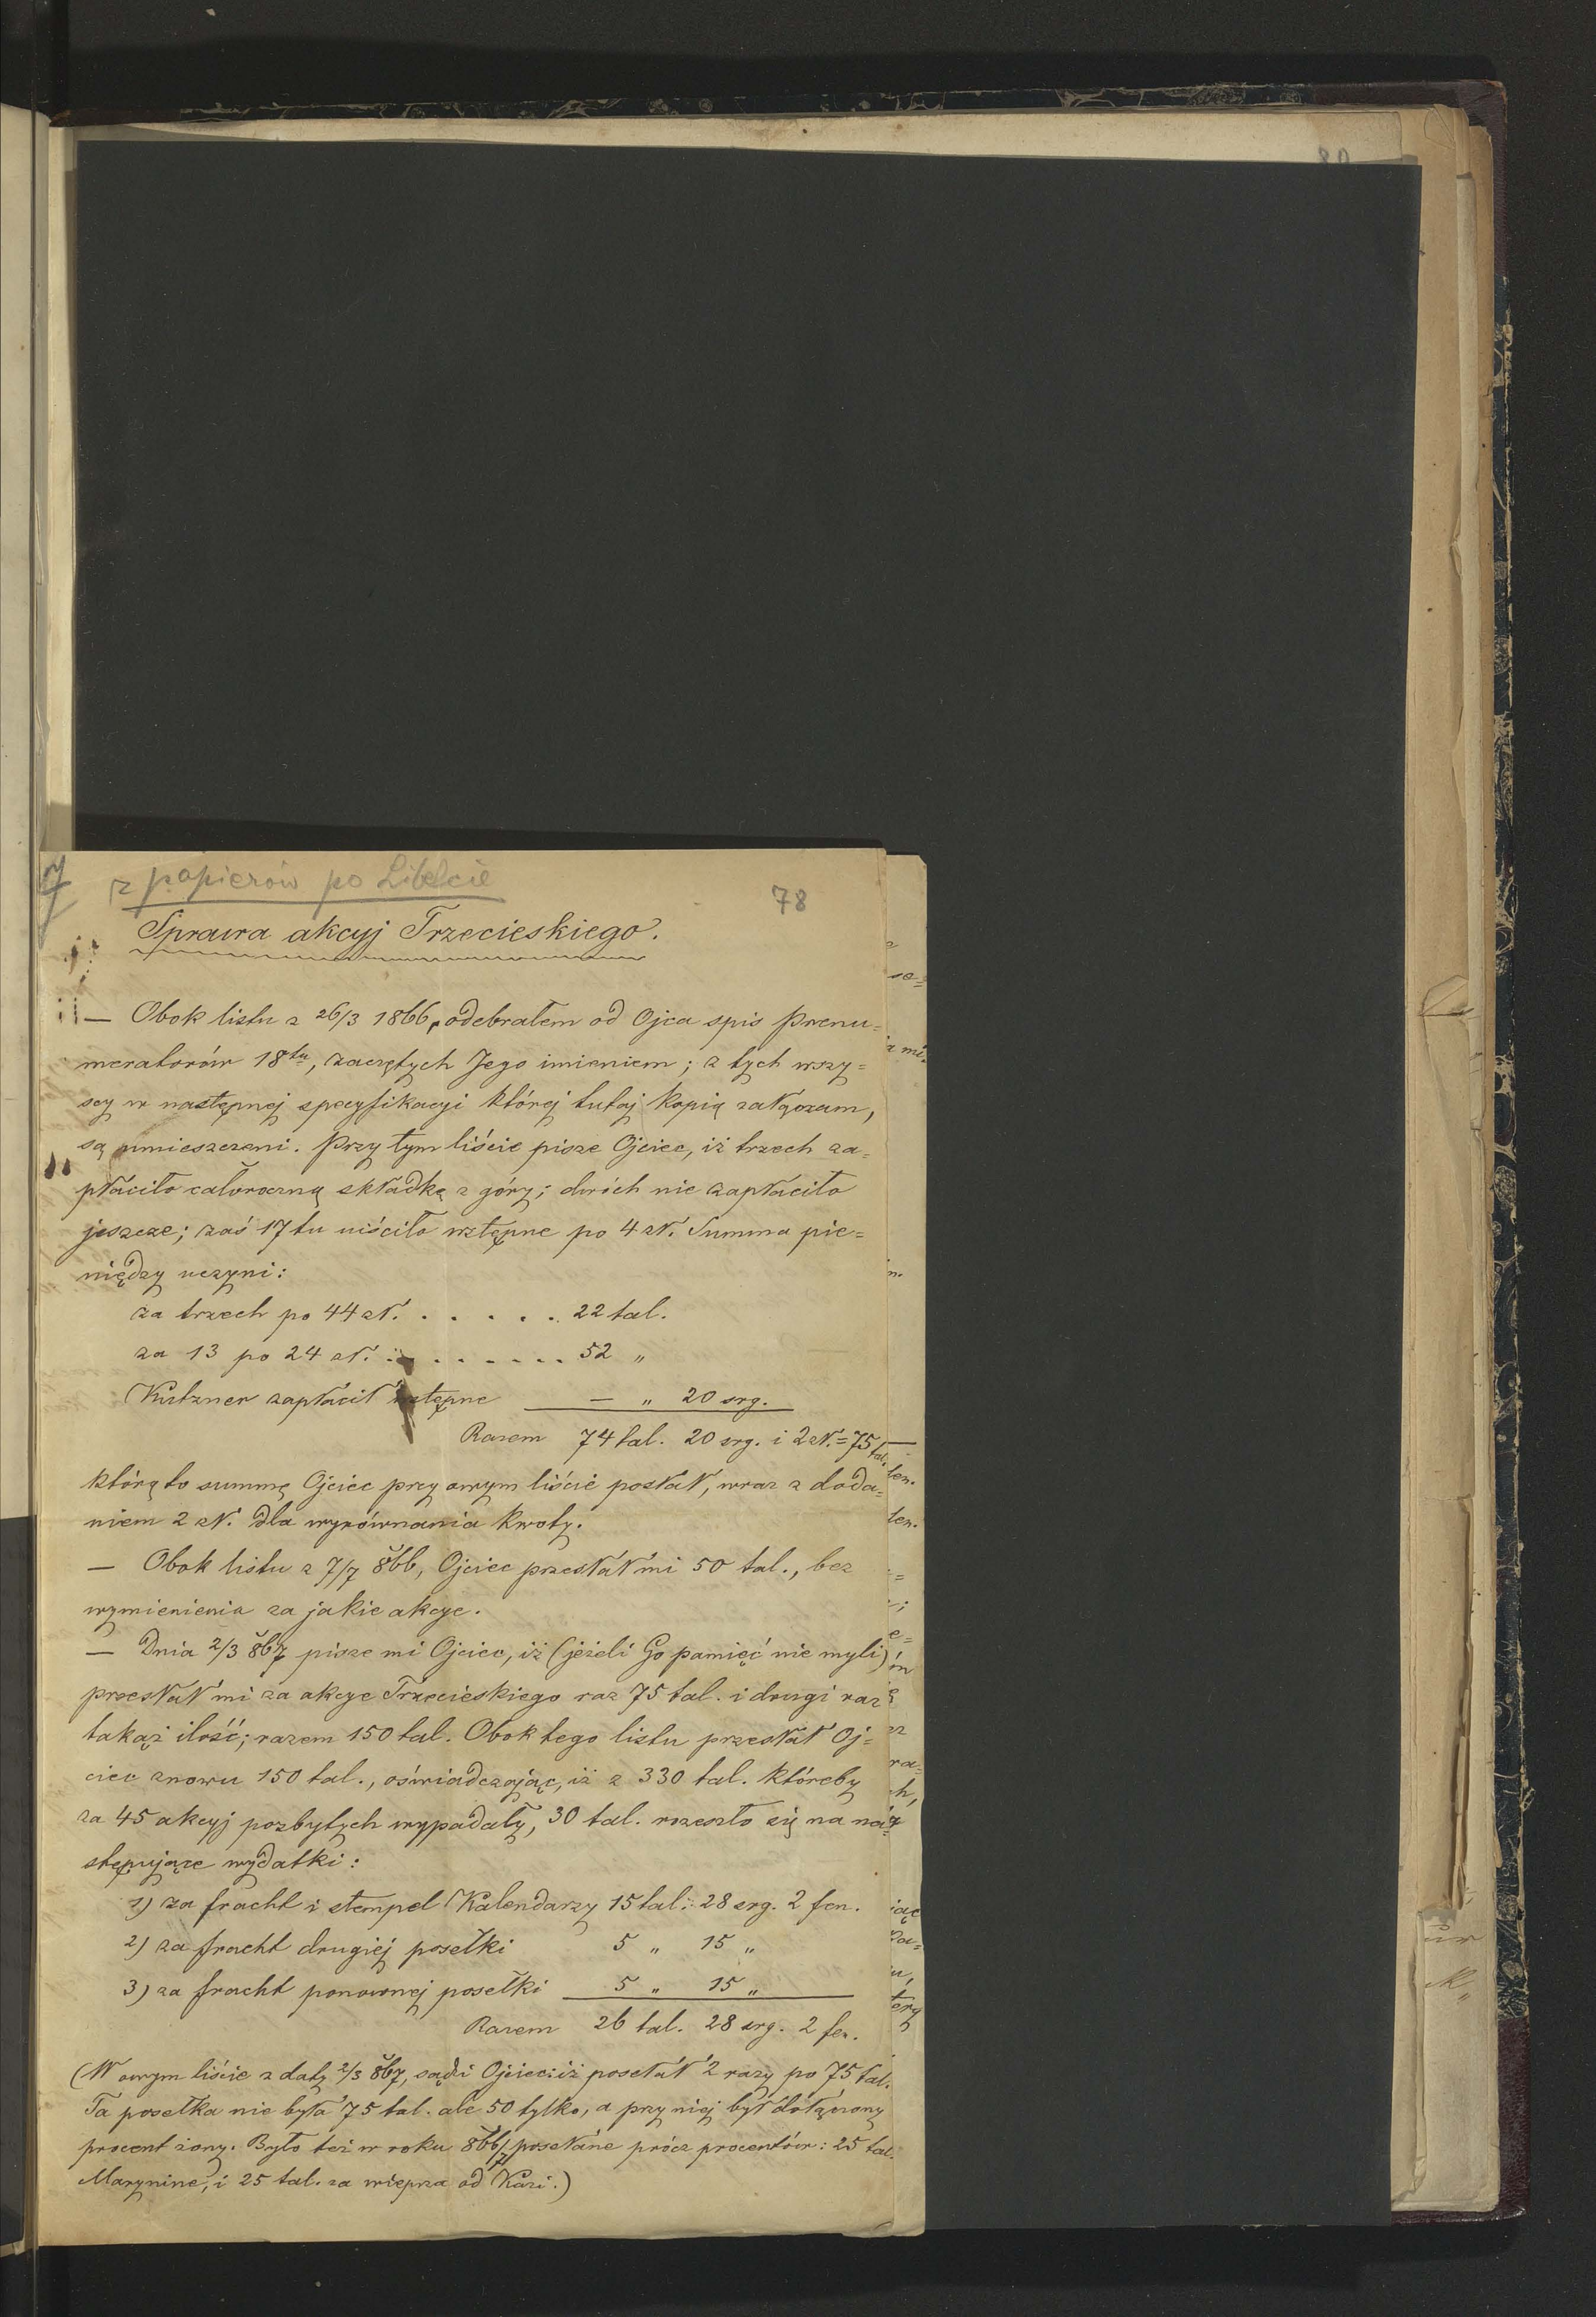 80
z papierów po Libelcie
78
Sprawa akcyj Trzecieskiego.
— Obok listu z 26/3 1866, odebrałem od Ojca spis prenu=
meratorów 18tu, zaczętych Jego imieniem; z tych wszy=
scy w następnej specyfikacyi której tutaj kopią załączam,
są umieszczeni. Przy tym liście pisze Ojciec, iż trzech za=
płaciło całoroczną składkę z góry; dwóch nie zapłaciło
jeszcze; zaś 17tu uiściło wstępne po 4 zł. Summa pie=
niędzy uczyni:
za trzech po 44 zł. . . . . . . 22 tal.
za 13 po 24 zł. . . . . . . . 52 „
Kutzner zapłacił wstępne — „ 20 srg.
Razem 74 tal. 20 srg. i 2 zł. = 75 tal.
którą to summę Ojciec przy owym liście posłał, wraz z doda=
niem 2 zł. dla wyrównania kwoty.
— Obok listu z 7/7 866, Ojciec przesłał mi 50 tal., bez
wymienienia za jakie akcye.
— Dnia 2/3 867 pisze mi Ojciec, iż (jeżeli Go pamięć nie myli)
przesłał mi za akcye Trzecieskiego raz 75 tal. i drugi raz
takąż ilość; razem 150 tal. Obok tego listu przesłał Oj=
ciec znowu 150 tal., oświadczając, iż z 330 tal. któreby
za 45 akcyj pozbytych wypadały, 30 tal. rozeszło się na na=
stępujące wydatki:
1) za fracht i stempel Kalendarzy 15 tal. 28 srg. 2 fen.
2) za fracht drugiej posełki 5 „ 15 „
3) za fracht ponownej posełki 5 „ 15 „
Razem 26 tal. 28 srg. 2 fen.
(W owym liście z daty 2/3 867, sądzi Ojciec iż posełał 2 razy po 75 tal.
Ta posełka nie była 75 tal. ale 50 tylko, a przy niej był dołączony
procent żony. Było też w roku 866/7 posełane prócz procentów: 25 tal.
Marynine, i 25 tal. za wieprza od Kazi.)